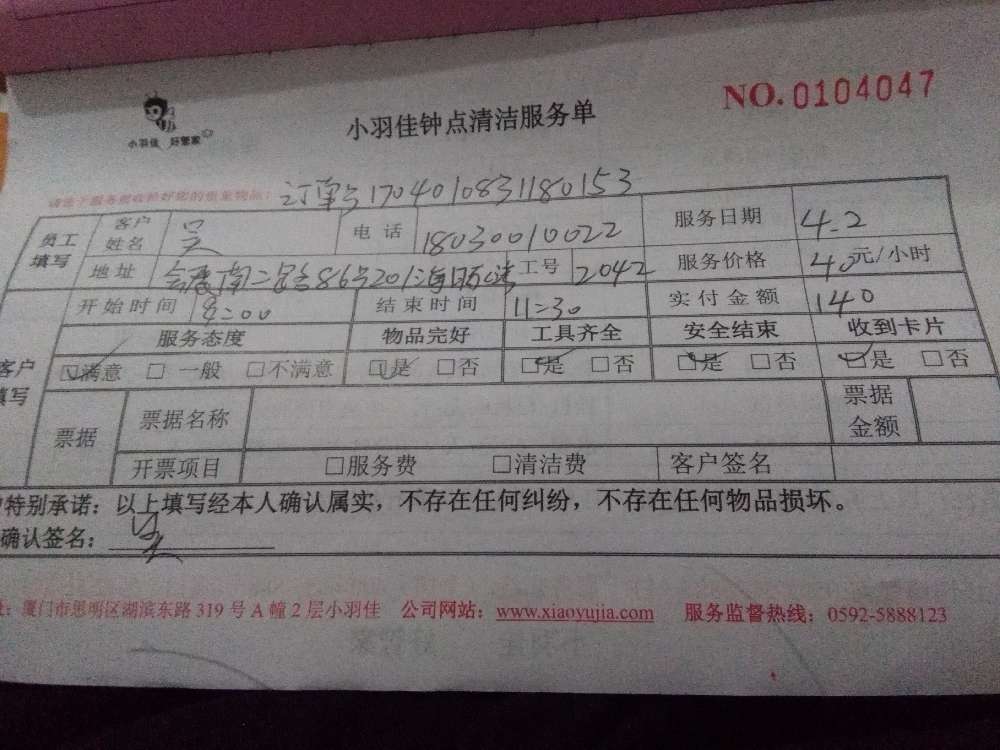 NO. 0104047
小羽佳 好管家
小羽佳钟点清洁服务单
请送于服务前收拾好您的贵重物品: 订单号1704010831180153
员工填写 客户姓名 吴 电话 18030010022 服务日期 4.2
地址 会展南二里86号201 工号 2042 服务价格 40元/小时
开始时间 8:00 结束时间 11:30 实付金额 140
客户填写 服务态度 物品完好 工具齐全 安全结束 收到卡片
☑满意 □一般 □不满意 ☑是 □否 ☑是 □否 ☑是 □否 ☑是 □否
票据 票据名称 票据金额
开票项目 □服务费 □清洁费 客户签名
特别承诺：以上填写经本人确认属实，不存在任何纠纷，不存在任何物品损坏。
确认签名： 吴
厦门市思明区湖滨东路 319 号 A 幢 2 层小羽佳 公司网站：www.xiaoyujia.com 服务监督热线：0592-5888123